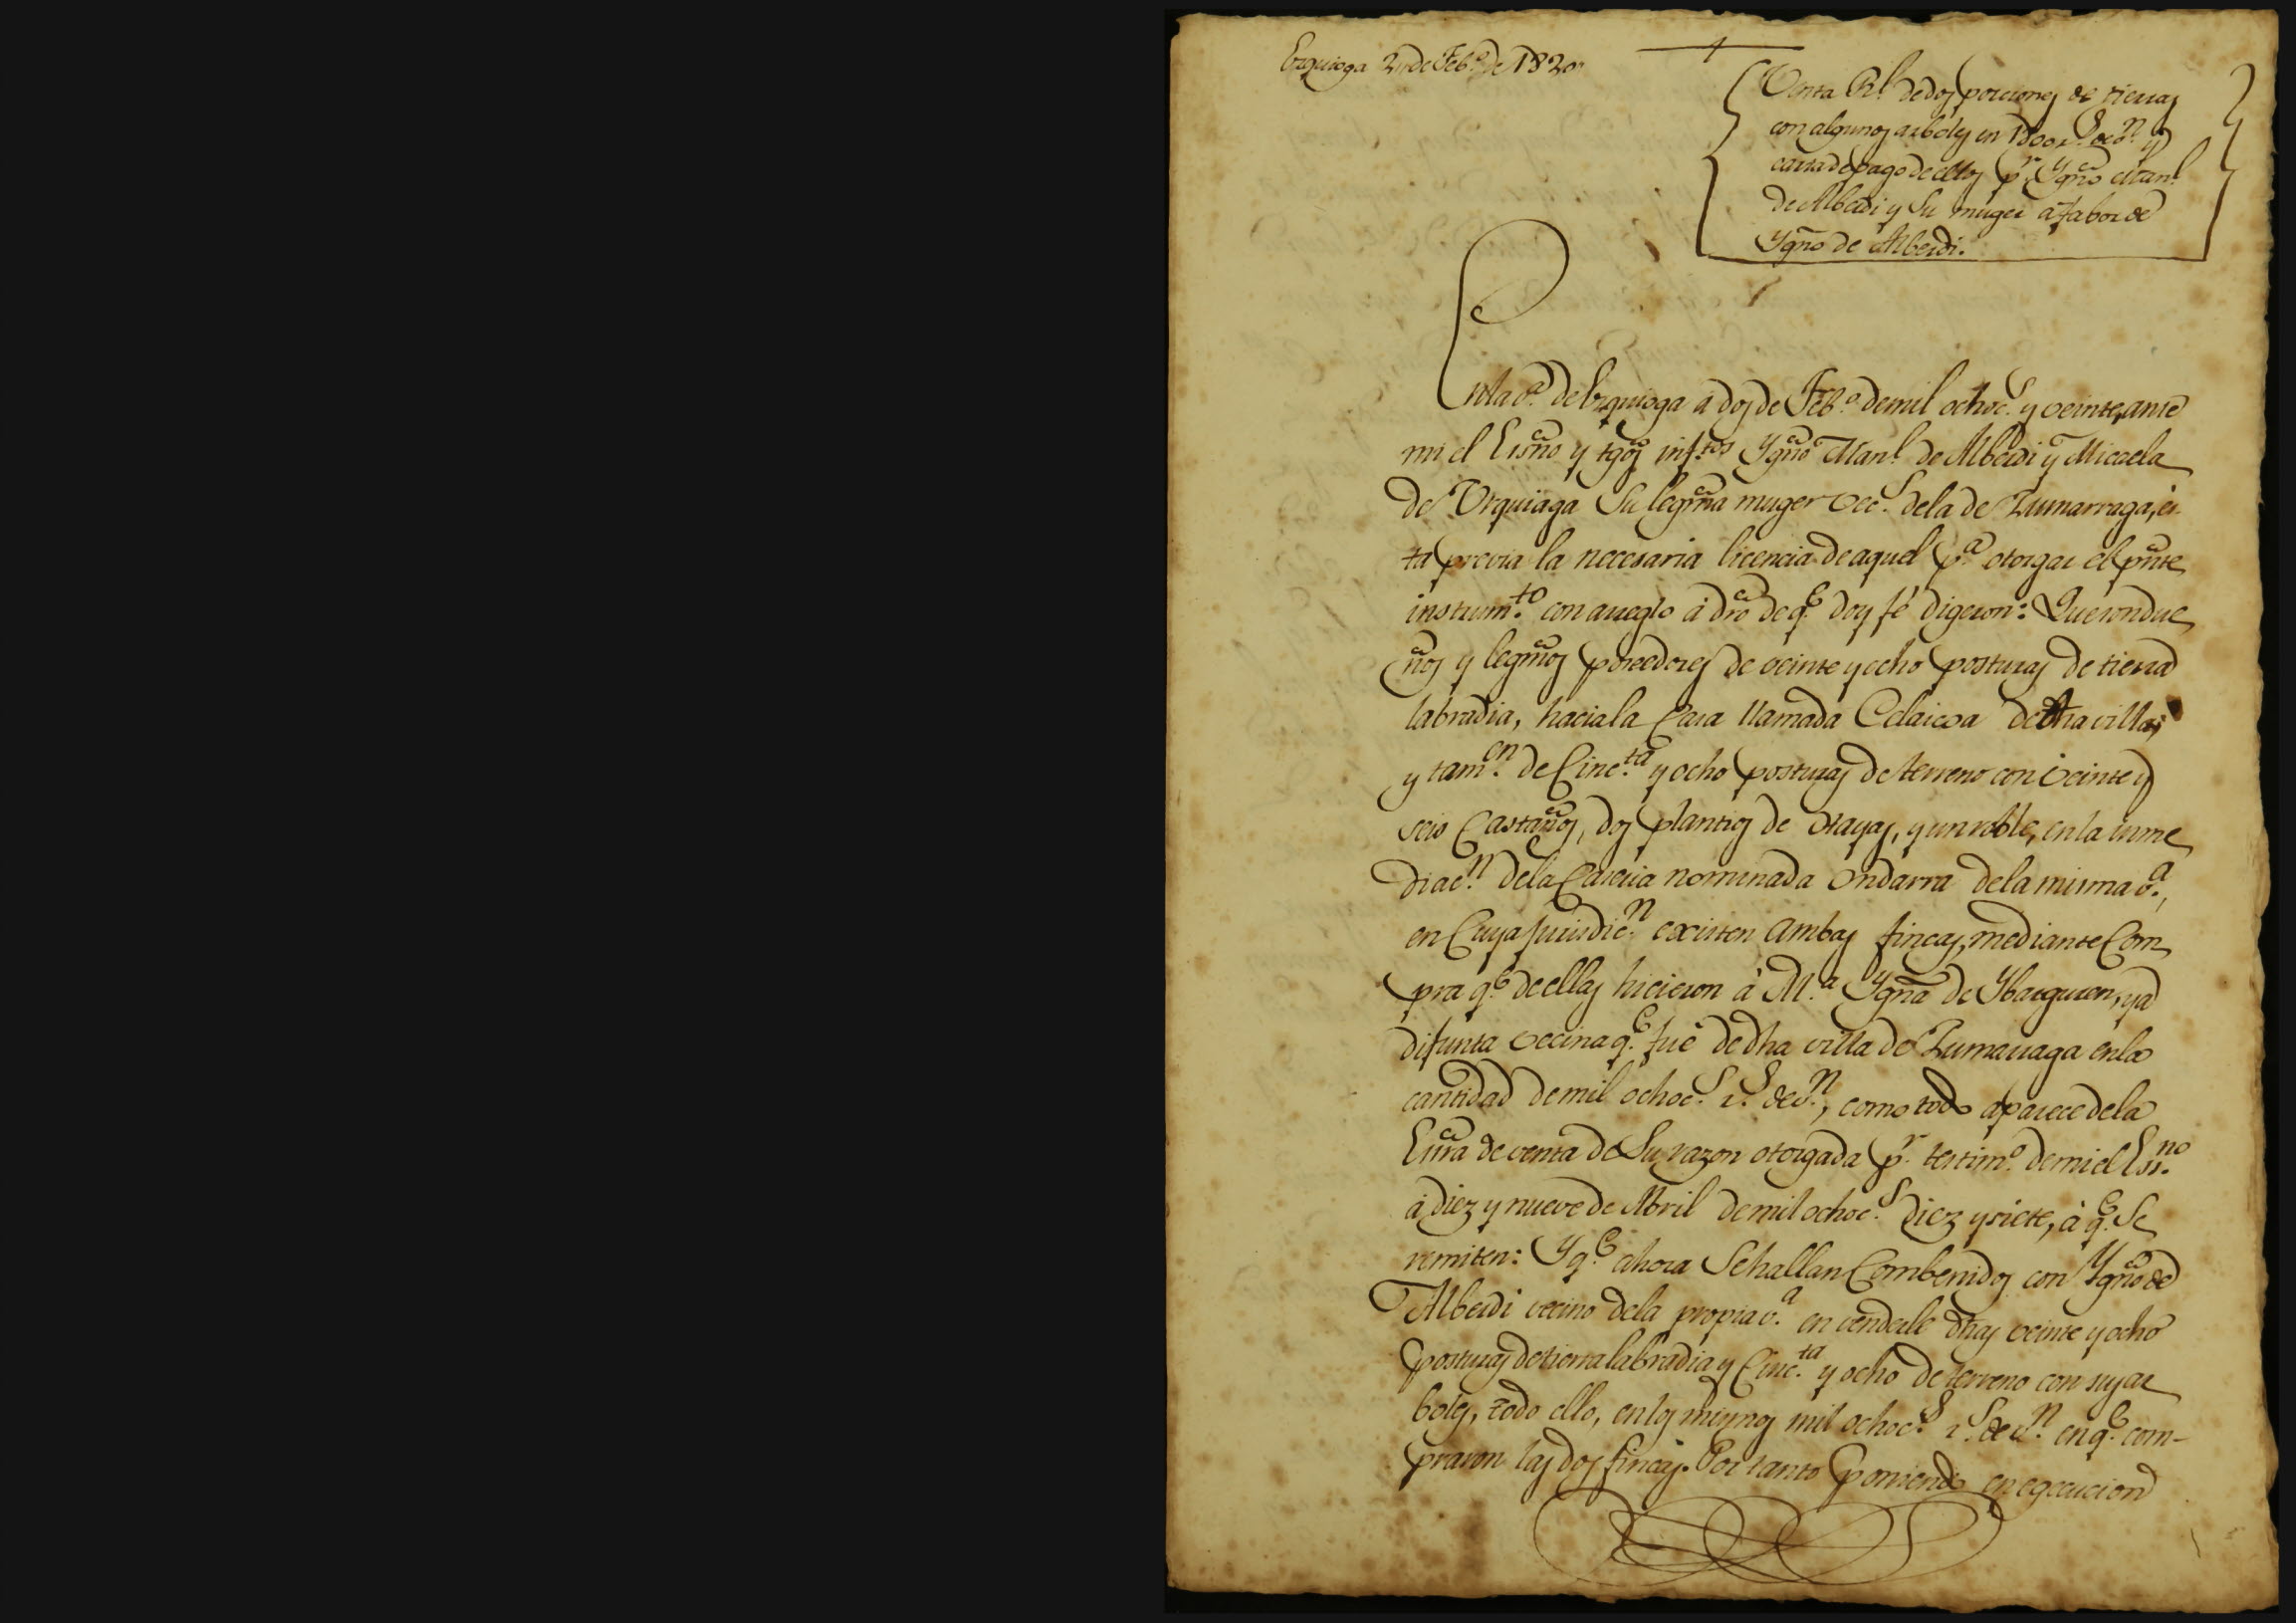 Ezquioga 2 de Feb.o de 1820
Venta Rl. de dos porciones de tierras
con algunos arboles en 1800 r.s de v.n y
carta de pago de ellos p.r Ygno Man.l
de Alberdi y su muger à fabor de
Ygno de Alberdi.
En la v.a de Ezquioga à dos de Feb.o de mil ochoc.s y veinte, ante
mi el Esno y tgos inf.tos Ygno Man.l de Alberdi y Micaela
de Urquiaga su legma muger vec.s de la de Zumarraga, es-
ta previa la necesaria licencia de aquel p.a otorgar el pnte
instrum.to con arreglo à dro de q.e doy fé digeron: Que son due
ños y legmos poseedores de veinte y ocho posturas de tierra
labradia, hacia la Casa llamada Celaicoa de dha villa;
y tam.en de Cinc.ta y ocho posturas de terreno con veinte y
seis Castaños, dos plantios de Hayas, y un roble, en la inme
diac.n de la Caseria nominada Ondarra de la misma v.a,
en Cuya jurisdic.n existen ambas fincas, mediante Com
pra q.e de ellas hicieron à M.a Ygna de Ybarguren, ya
difunta vecina q.e fué de dha villa de Zumarraga en la
cantidad de mil ochoc.s r.s de v.n, como todo aparece de la
Esra de venta de su razon otorgada p.r testim.o de mi el Ess.no
à diez y nueve de Abril de mil ochoc.s diez y siete, à q.e se
remiten: Y q.e ahora se hallan Combenidos con Ygno de
Alberdi vecino de la propia v.a en venderle dhas veinte y ocho
posturas de tierra labradia y Cinc.ta y ocho de terreno con sus ar
boles, todo ello, en los mismos mil ochoc.s r.s de v.n en q.e com-
praron las dos fincas. Por tanto poniendo en egecucion